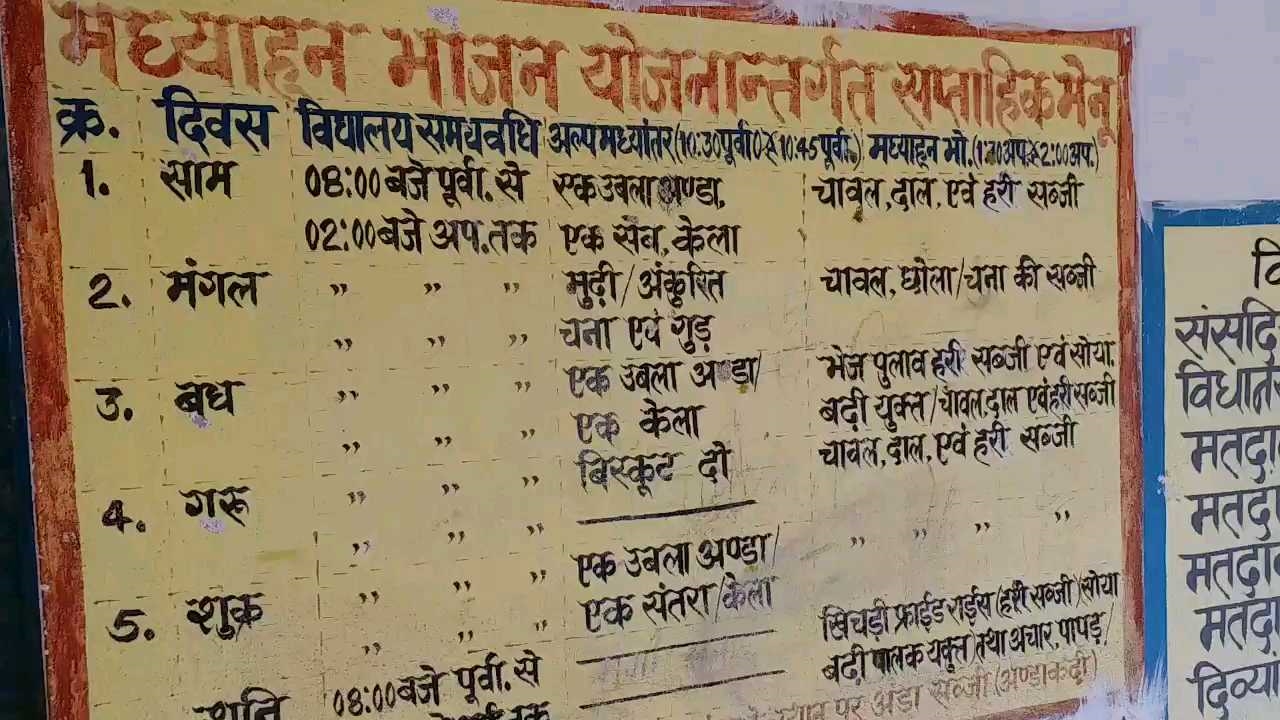 मध्याह्न भोजन योजनान्तर्गत साप्ताहिक मेनू
क्र. दिवस विद्यालय समयवधि अल्पमध्यांतर (10:30 पूर्वा० से 10:45 पूर्वा.) मध्याहन भो. (1:30 अप. से 2:00 अप.)
1. सोम 08:00 बजे पूर्वा. से एक उबला अण्डा, चावल, दाल, एवं हरी सब्जी
02:00 बजे अप. तक एक सेव, केला
2. मंगल ,, ,, ,, मुढ़ी / अंकुरित चावल, छोला / चना की सब्जी
,, ,, ,, चना एवं गुड़
3. बुध ,, ,, ,, एक उबला अण्डा / भेज पुलाव हरी सब्जी एवं सोया.
,, ,, ,, एक केला बढ़ी युक्त / चावल, दाल एवं हरी सब्जी
4. गुरू ,, ,, ,, बिस्कूट दो चावल, दाल, एवं हरी सब्जी
,, ,, ,,
5. शुक्र ,, ,, ,, एक उबला अण्डा / ,, ,, ,,
,, ,, ,, एक संतरा / केला
शनि 08:00 बजे पूर्वा. से खिचड़ी फ्राईड राईस (हरी सब्जी) सोया
बढ़ी पालक युक्त) तथा अचार, पापड़ /
स्थान पर अंडा सब्जी (अण्डाकढ़ी)
वि
संसदि
विधान
मतदा
मतदा
मतदा
मतदा
दिव्या